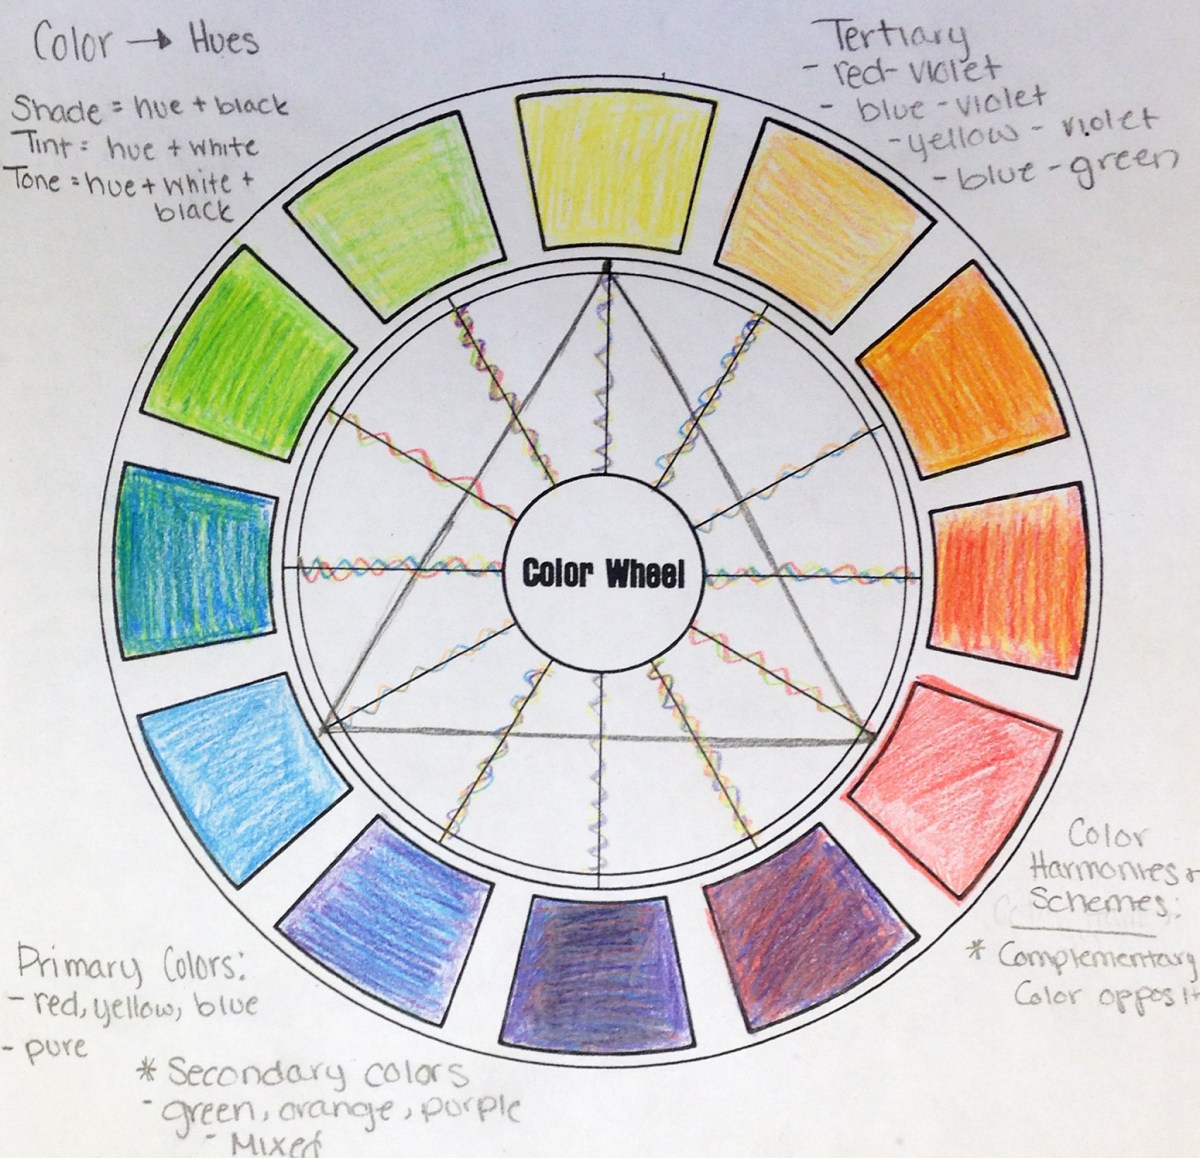 Color → Hues
Shade = hue + black
Tint = hue + white
Tone = hue + white +
black
Tertiary
- red-violet
- blue-violet
- yellow-violet
- blue-green
Color Wheel
Color
Harmonies +
Schemes:
* Complementary
Color opposit
Primary Colors:
- red, yellow, blue
- pure
* Secondary colors
- green, orange, purple
- Mixed